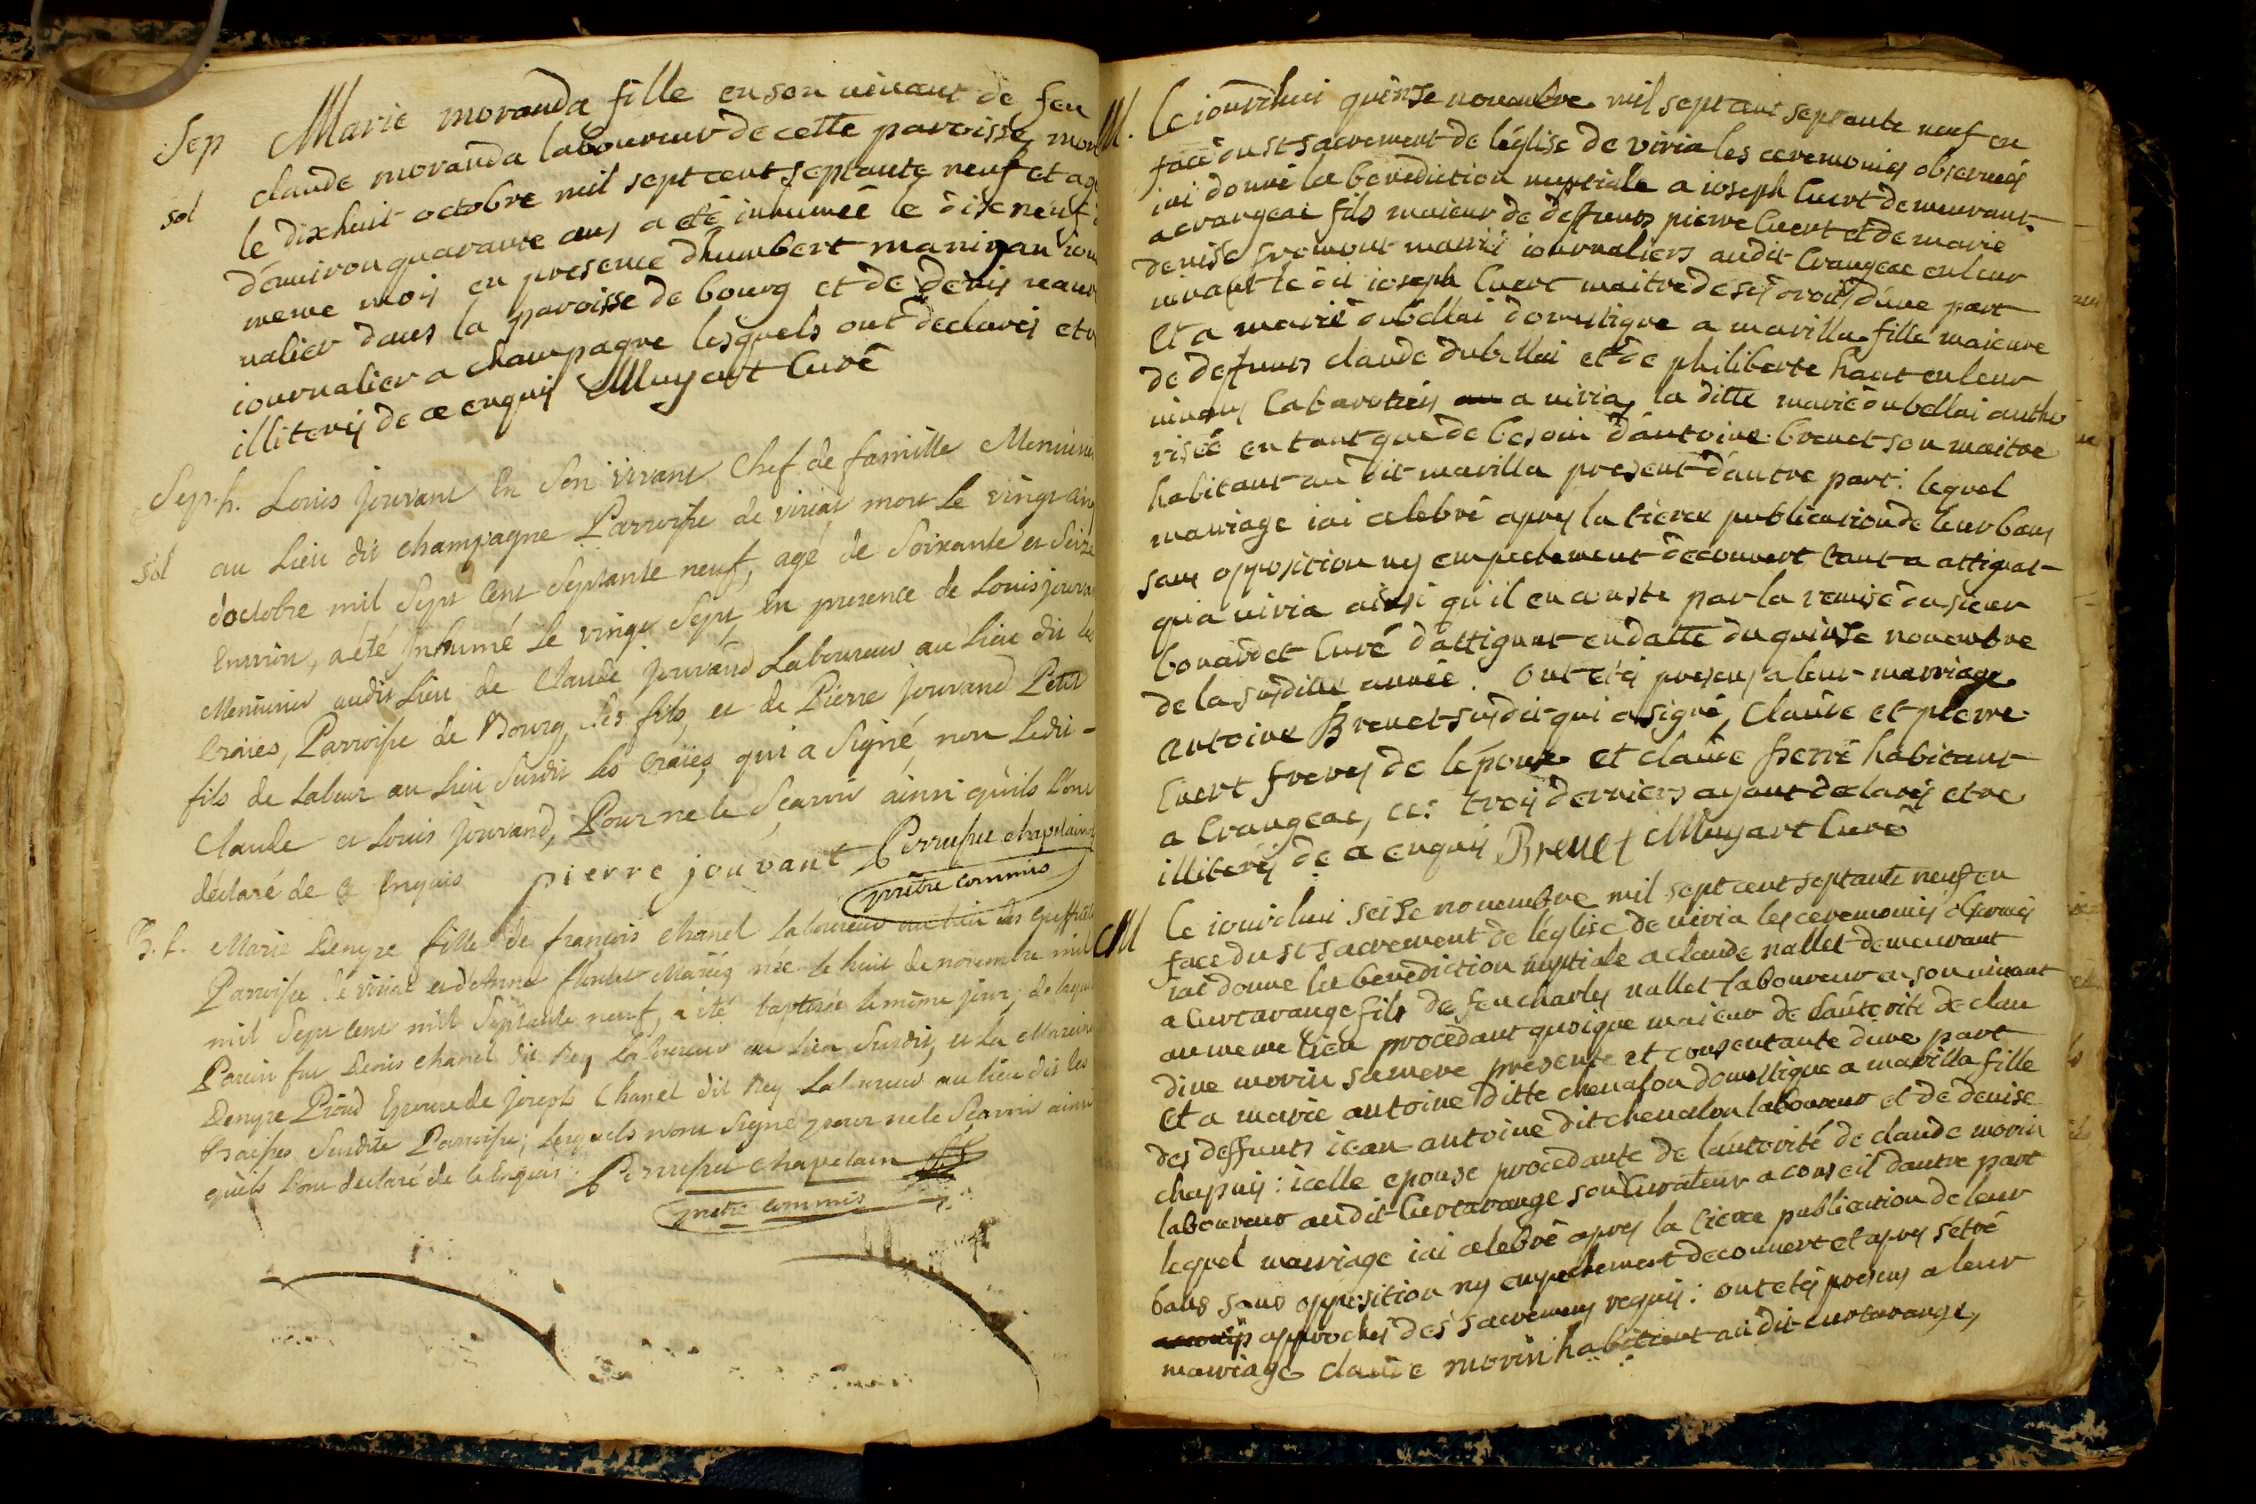 Sep Marie moranda fille en son vivant de feu
claude moranda laboureur de cette paroisse, mor
sol le dixhuit octobre mil sept cent septante neuf et ag
denviron quarante ans a eté inhumée le dix neuf d
meme mois en presence dhumbert manigan iour
nalier dans la paroisse de bourg et de denis
iournalier a champagne lesquels ont declarés etr
illiterés de ce enquis Muyart Curé
Sep. h. Louis jouvant En Son vivant Chef de famille Menuisier
sol au Lieu dit champagne Parroisse de viriat mort Le vingt cinq
doctobre mil Sept Cent Septante neuf, agé de Soixante et Seize
Environ, a été Inhumé Le vingt Sept, En presence de Louis jouva
Menuisier audit Lieu de Claude jouvand Laboureur au Lieu dit les
Craies, Parroisse de Bourg, Ses fils, et de Pierre jouvand Petit
fils de Labeur au Lieu Susdit Les Craies, qui a Signé, non Ledit
Claude et Louis jouvand, Pour ne le Scavoir ainsi quils L'ont
déclaré de ce Enquis pierre jouvant Perruquet chapelain
prêtre commis
B. f. Marie Denyse fille de françois Chanel Laboureur au lieu des
Parroisse de viriat et d'Anne Mariés née le huit de novembre mil
mil Sept Cent mil Septante neuf, a été baptisée le même jour; de laquel
Parein fut Denis Chanel dit Rey Laboureur au Lieu Susdit, et La Mareine
Denyse Epouse de joseph Chanel dit Rey Laboureur au lieu dit les
Susdite Parroisse; Lesquels nont Signé pour ne le Scavoir ainsi
quils L'ont declaré de ce Enquis. chapelain
pretre commis
M. Le iourdhui quinse novembre mil sept cent septante neuf en
face du st sacrement de léglise de viria les ceremonies observées
iai donné la benediction nuptiale a ioseph Cuert demeurant
a crangeac fils maieur de deffunts pierre Cuert et de marie
denise fromont mariés iournaliers audit Crangeac en leur
vivant le dit ioseph Cuert maitre de ses droits dune part
Et a marie dubellai domestique a marilla fille maieure
de deffunts claude dubellai et de philiberte haut en leur
vivans Cabaretiers a viria, la ditte marie dubellai autho
risée en tant que de besoin dantoine brevet son maitre
habitant au dit marilla present dautre part: lequel
mariage iai celebré apres la tierce publication de leur bans
sans opposition ny empechement decouvert tant a attignat
qua viria ainsi quil en conste par la remise du sieur
bouardet Curé dattignat en datte du quinse novembre
de la susditte année. Ont etés presens a leur mariage
antoine Brevet susdit qui a signé, Claude et pierre
Cuert freres de lépoux et claude ferré habitant
a Crangeac, ces trois derniers ayant declarés etre
illiterés de ce enquis Brevet Muyart Curé
M Le iourdhui seise novembre mil sept cent septante neuf en
face du st sacrement de léglise de viria les ceremonies observées
iai donné la benediction nuptiale a claude nallet demeurant
a Curtarange fils de feu charles nallet laboureur en son vivant
au meme lieu procedant quoique maieur de lautorité de clau
dine morin sa mere presente et consentante dune part
et a marie antoine ditte chevalon domestique a marilla fille
des deffunts iean antoine dit chevalon laboureur et de denise
chapuis: icelle epouse procedante de lautorité de claude morin
laboureur audit Curtarange son Curateur a conseil dautre part
lequel mariage iai celebré apres la tierce publication de leur
bans sans opposition ny empechement decouvert et apres sétre
approchés des sacremens requis: ont etés presens a leur
mariage claude morin habitant au dit curtarange,